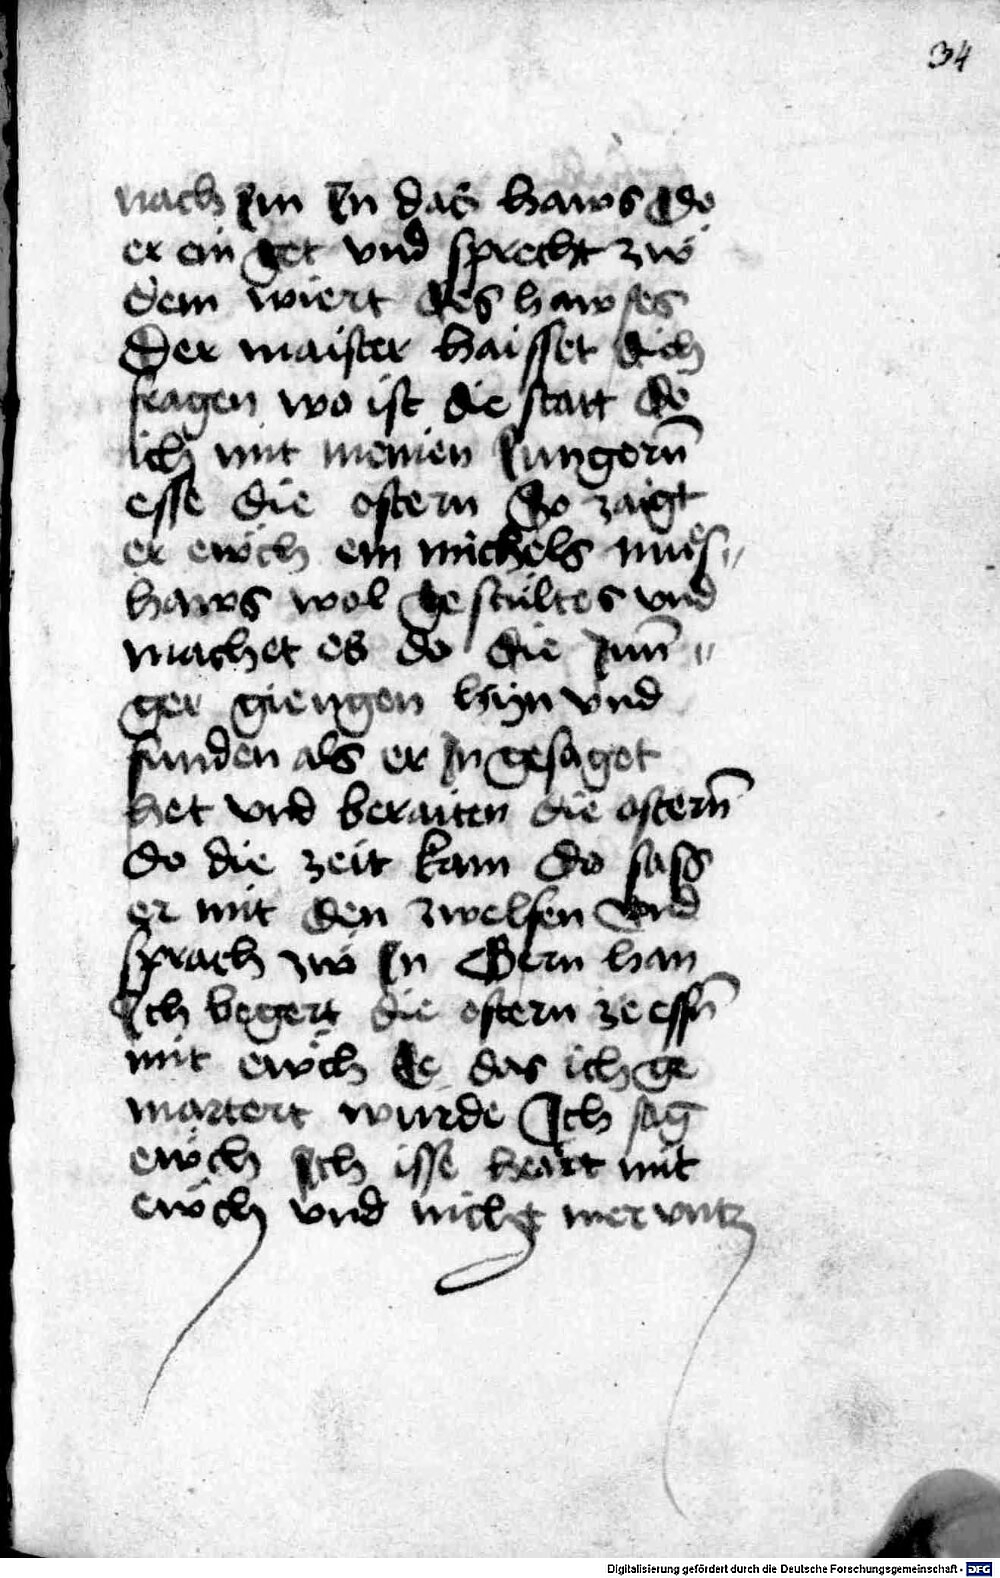 34
nach Im In das haws do
er ein get vnd sprecht zwͦ
dem wiert des hawses
Der maister haisset dich
fragen wo ist die statt do
ich mit meinen Jungern̄
esse die ostern So zaigt
er ewch ein michels mües„
haws wol gestültes vnd
machet es do die Jun̄„
ger giengen hyn vnd
funden als er In gesaget
het vnd beraiten die ostern̄
do die zeit kam do sass
er mit den zwelfen vnd
sprach zwͦ In Gern han
Ich begert die ostern ze essn̄
mit ewch Ee das ich ge
martert wurde Ich sag
ewch Ich isse heẅt mit
ewch vnd nicht mer vntz
Digitalisierung gefördert durch die Deutsche Forschungsgemeinschaft - DFG